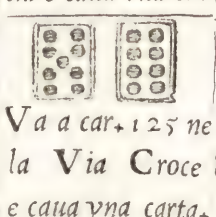 Va a car. 125 ne
la Via Croce
e caua vna carta.